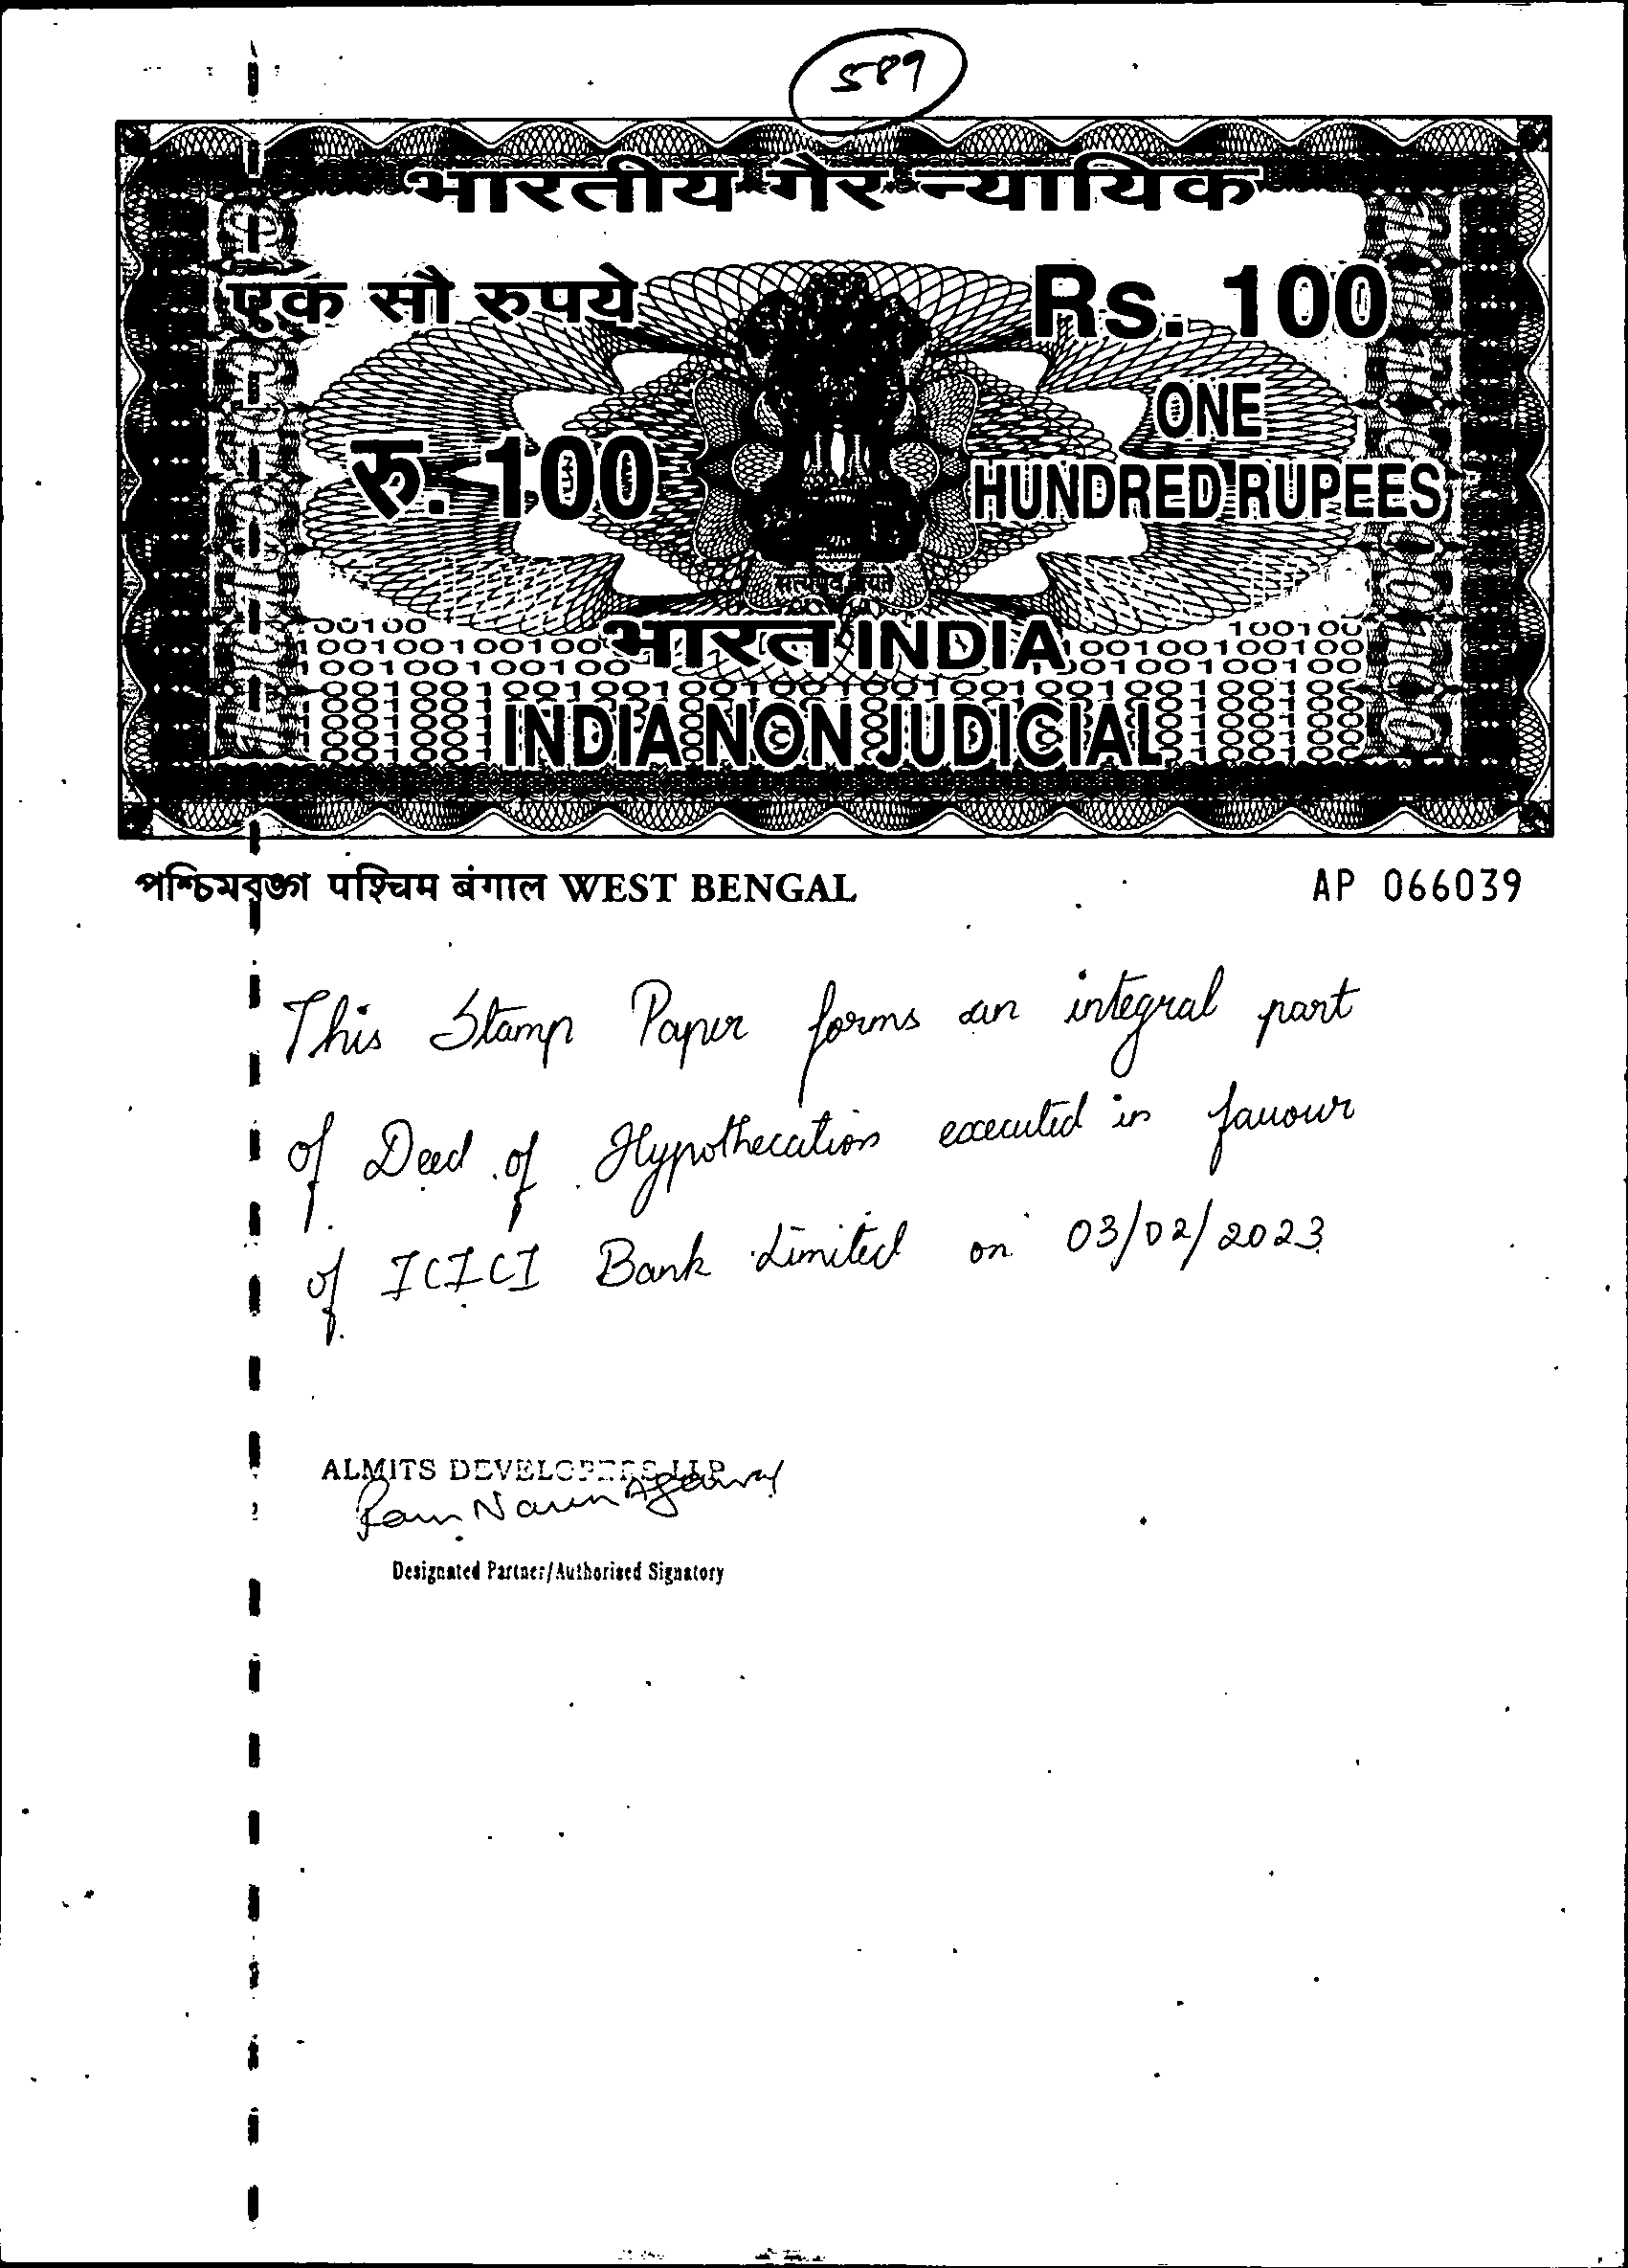 589
भारतीय गैर न्यायिक
एक सौ रुपये
Rs. 100
रु. 100
ONE
HUNDRED RUPEES
सत्यमेव जयते
भारत INDIA
INDIA NON JUDICIAL
পশ্চিমবঙ্গ पश्चिम बंगाल WEST BENGAL
AP 066039
This Stamp Paper forms an integral part
of Deed of Hypothecation executed in favour
of ICICI Bank Limited on 03/02/2023
ALMITS DEVELOPERS LLP
Ram Naren Agarwal
Designated Partner/Authorised Signatory